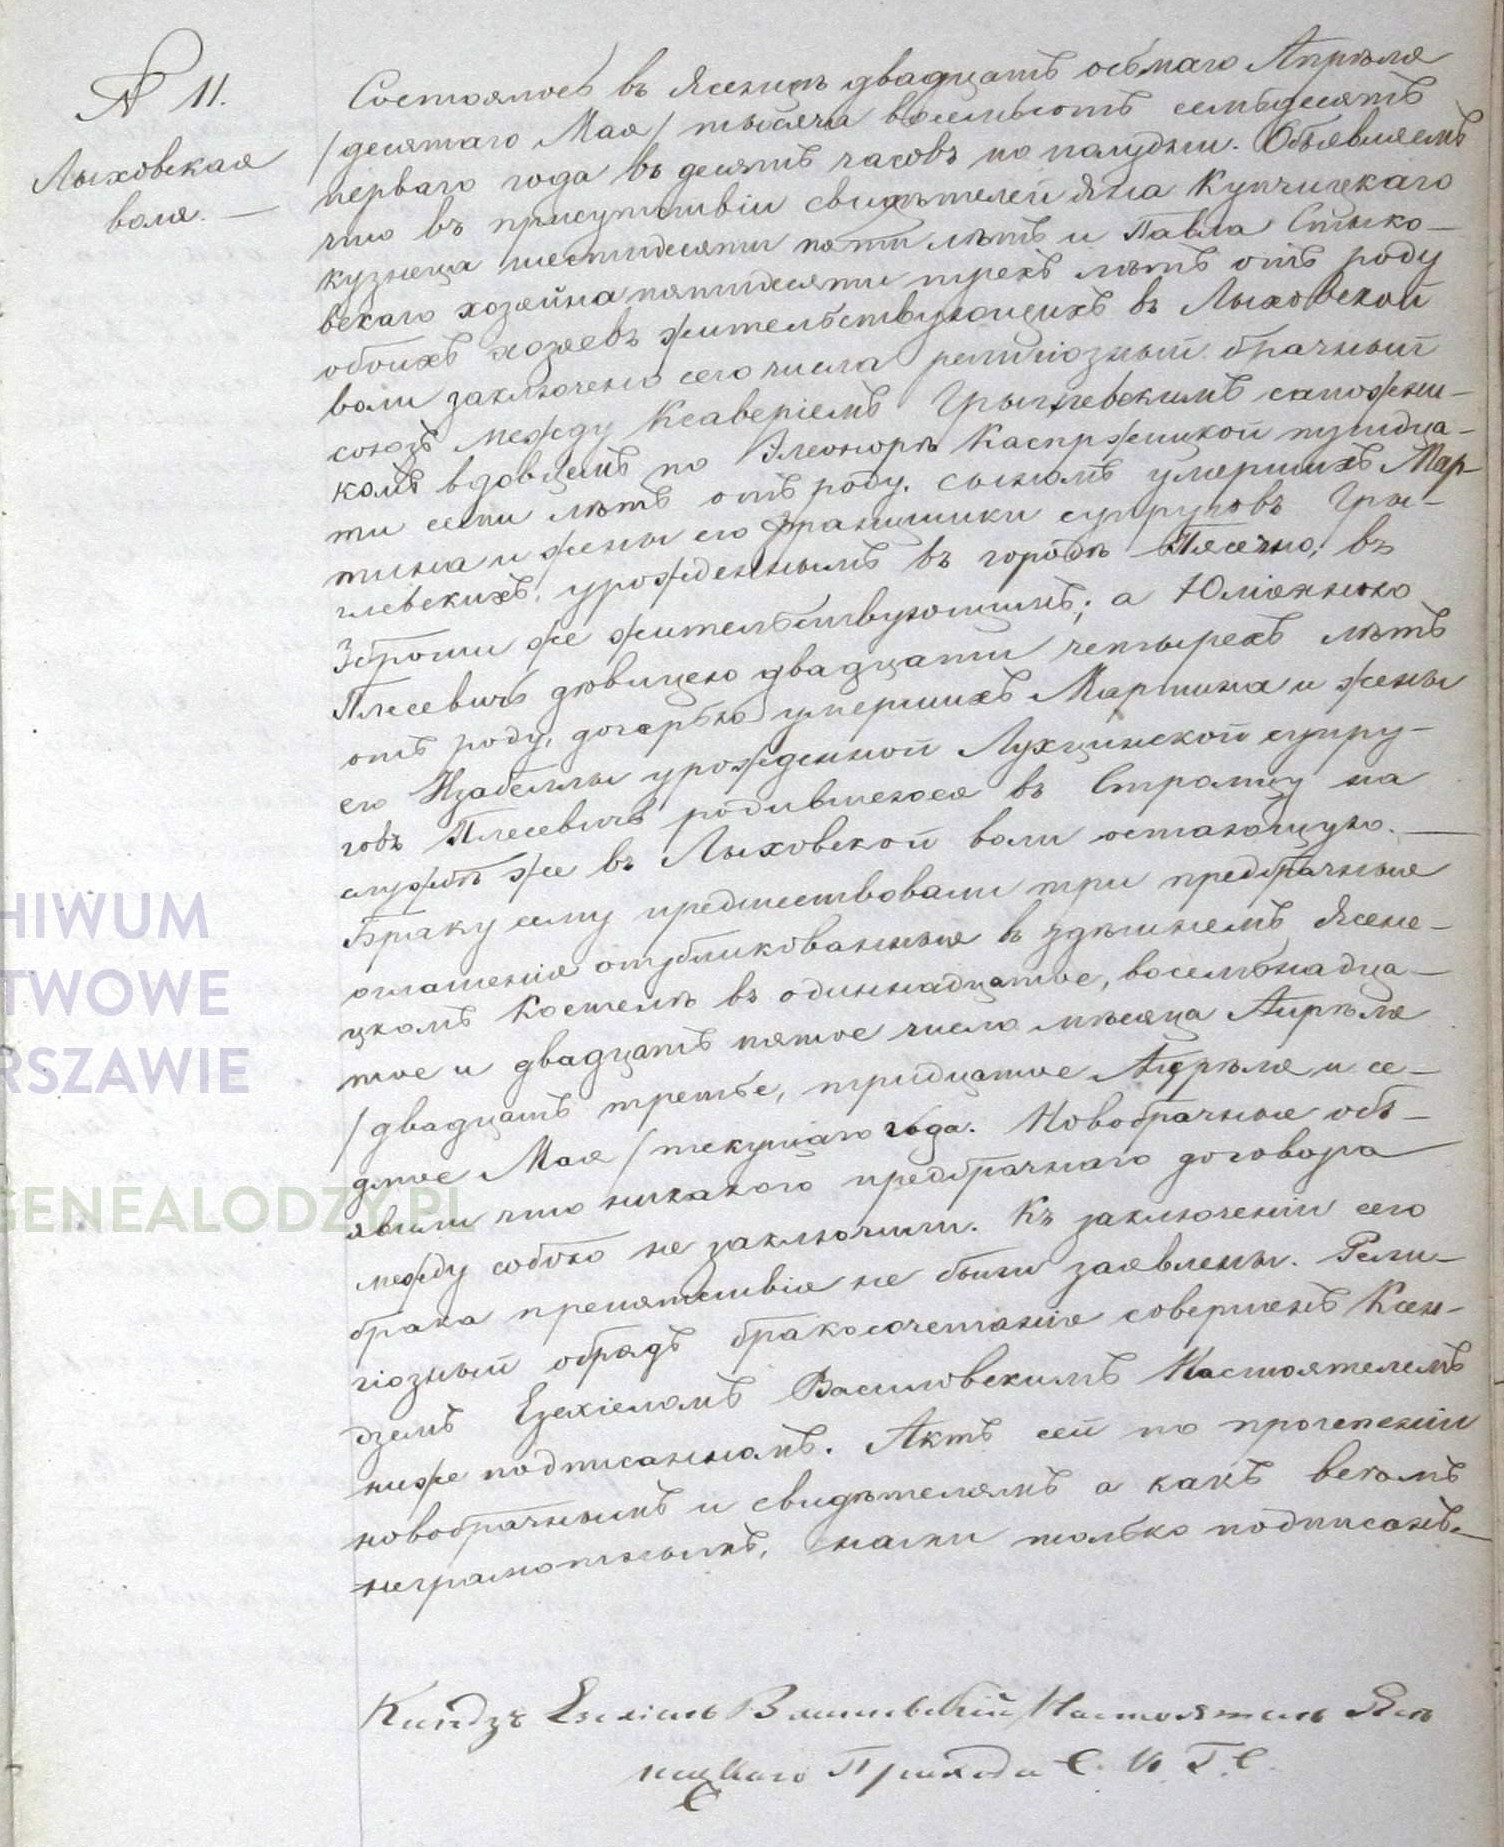 № 11.
Лыховская
воля. —
Состоялось въ Ясенцѣ двадцать осьмаго Апрѣля
/десятаго Мая/ тысяча восемьсотъ семьдесятъ
перваго года въ десять часовъ по полудни. Объявляемъ
что въ присутствіи свидѣтелей Яна Купчицкаго
кузнеца шестидесяти пяти лѣтъ и Павла Стыко-
вскаго хозяйна пятидесяти трехъ лѣтъ отъ роду
обоихъ хозяевъ жительствующихъ въ Лыховской
воли заключено сего числа религіозный брачный
союзъ между Ксаверіемъ Грыглевскимъ сапожни-
комъ вдовцемъ по Элеонорѣ Каспржицкой
ти семи лѣтъ отъ роду, сыномъ умершихъ Мар-
тина и жены его Францишки супруговъ Гры-
глевскихъ, урожденнымъ въ городѣ Пясечно, въ
Зброши же жительствующимъ; а Юліянною
Плесевичъ дѣвицею двадцати четырехъ лѣтъ
отъ роду, дочерью умершихъ Мартина и жены
его Изабеллы урожденной Лухцинской супру-
говъ Плесевичъ родившеюся въ Стромцу на
службѣ же въ Лыховской воли остающую. —
Браку сему предшествовали три предбрачныя
оглашенія опубликованныя въ здѣшнемъ Ясене-
цкомъ Костелѣ въ одиннадцатое, восемьнадца-
тое и двадцать пятое число мѣсяца Апрѣля
/двадцать третье, тридцатое Апрѣля и се-
дмое Мая/ текущаго года. Новобрачные объ-
явили что никакого предбрачнаго договора
между собою не заключили. Къ заключенію сего
брака препятствія не были заявлены. Рели-
гіозный обрядъ бракосочетанія совершенъ Ксен-
дземъ Езехіеломъ Василовскимъ Настоятелемъ
ниже подписаннымъ. Актъ сей по прочтеніи
новобрачнымъ и свидѣтелямъ а какъ всѣмъ
неграмотнымъ, нами только подписанъ. —
Ксендзъ Езехіель Василевскій Настоятель Ясе
нецкаго Прихода С. И. Г. С.
HIWUM
TWOWE
RSZAWIE
GENEALODZY.PL